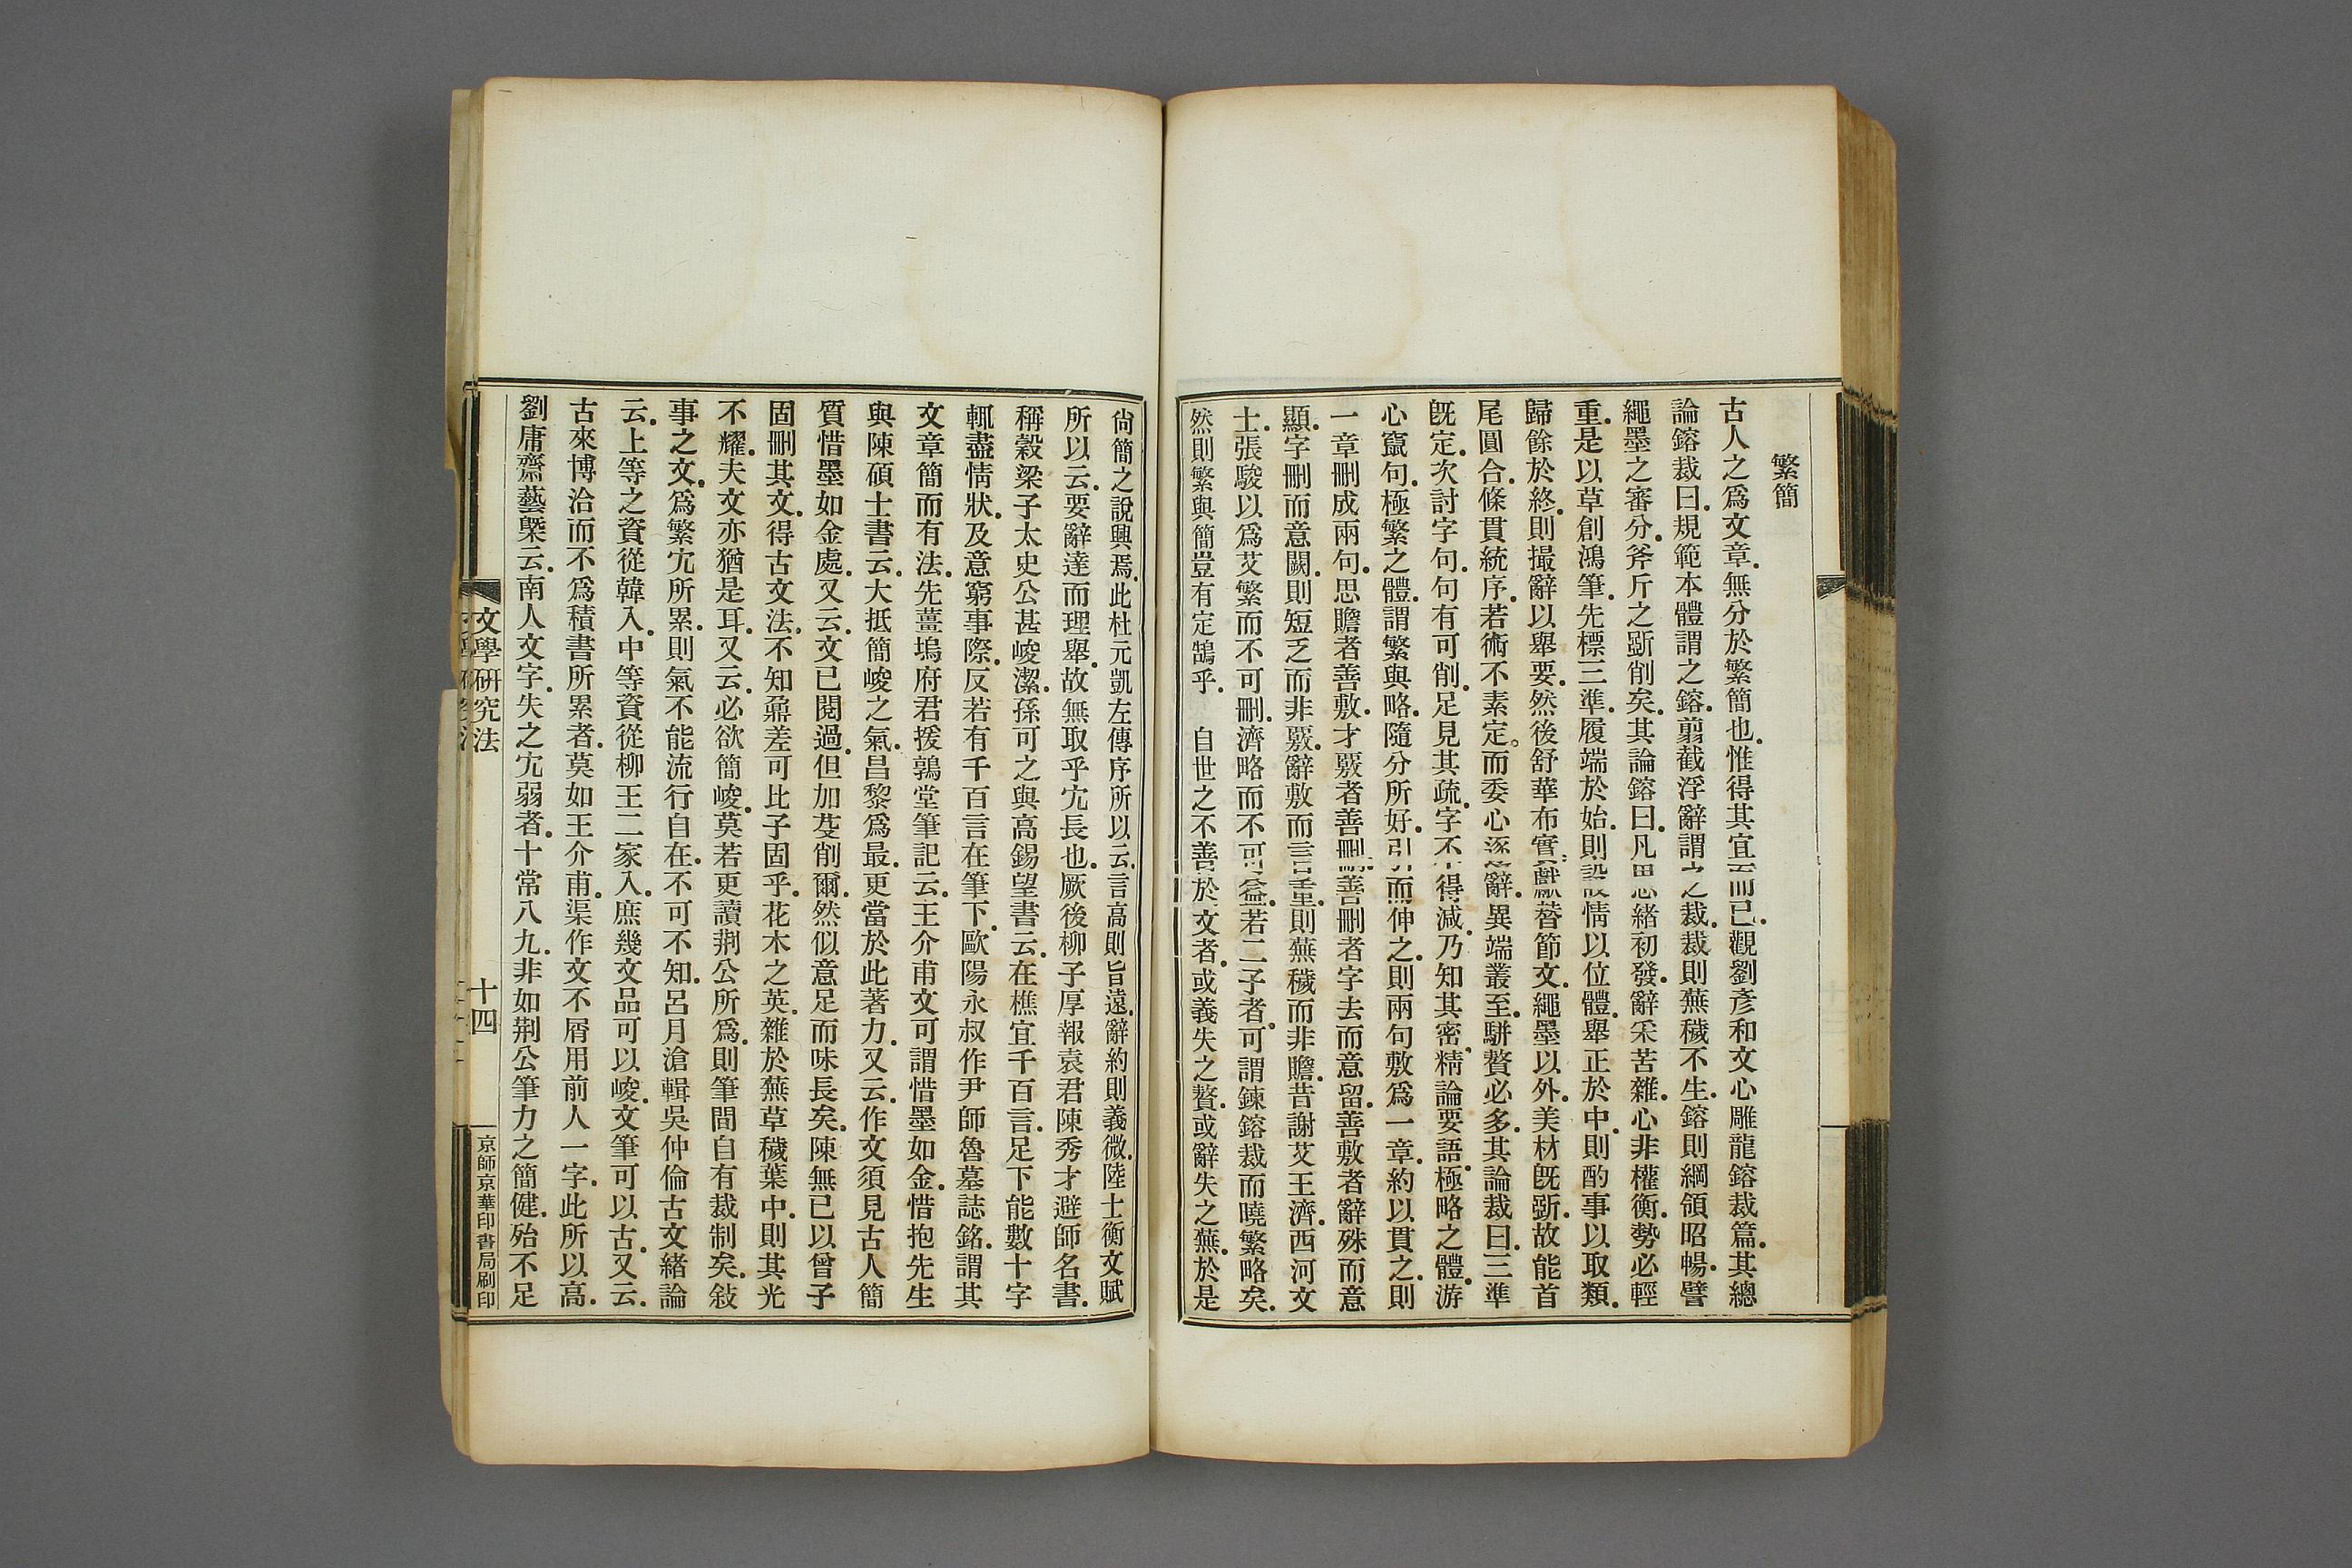 繁簡
古人之爲文章．無分於繁簡也．惟得其宜而已．觀劉彥和文心雕龍鎔裁篇．其總
論鎔裁曰．規範本體謂之鎔．翦截浮辭謂之裁．裁則蕪穢不生．鎔則綱領昭暢．譬
繩墨之審分．斧斤之斲削矣．其論鎔曰．凡思緒初發．辭采苦雜．心非權衡．勢必輕
重．是以草創鴻筆．先標三準．履端於始．則設情以位體．舉正於中．則酌事以取類．
歸餘於終．則撮辭以舉要．然後舒華布實．獻替節文．繩墨以外．美材既斲．故能首
尾圓合．條貫統序．若術不素定。而委心逐辭．異端叢至．駢贅必多．其論裁曰．三準
既定．次討字句．句有可削．足見其疏．字不得減．乃知其密．精論要語．極略之體．游
心竄句．極繁之體．謂繁與略．隨分所好．引而伸之．則兩句敷爲一章．約以貫之．則
一章刪成兩句．思贍者善敷．才覈者善刪．善刪者字去而意留．善敷者辭殊而意
顯．字刪而意闕．則短乏而非覈．辭敷而言重．則蕪穢而非贍．昔謝艾王濟．西河文
士．張駿以爲艾繁而不可刪．濟略而不可益．若二子者．可謂鍊鎔裁而曉繁略矣．
然則繁與簡豈有定鵠乎．　自世之不善於文者．或義失之贅．或辭失之蕪．於是
尙簡之說興焉．此杜元凱左傳序所以云．言高則旨遠．辭約則義微．陸士衡文賦
所以云．要辭達而理舉．故無取乎宂長也．厥後柳子厚報袁君陳秀才避師名書．
稱穀梁子太史公甚峻潔．孫可之與高錫望書云．在樵宜千百言．足下能數十字
輒盡情狀．及意窮事際．反若有千百言在筆下．歐陽永叔作尹師魯墓誌銘．謂其
文章簡而有法．先薑塢府君援鶉堂筆記云．王介甫文可謂惜墨如金．惜抱先生
與陳碩士書云．大抵簡峻之氣．昌黎爲最．更當於此著力．又云．作文須見古人簡
質惜墨如金處．又云．文已閱過．但加芟削爾．然似意足而味長矣．陳無已以曾子
固刪其文．得古文法．不知鼐差可比子固乎．花木之英．雜於蕪草穢葉中．則其光
不耀．夫文亦猶是耳．又云．必欲簡峻．莫若更讀荆公所爲．則筆間自有裁制矣．敍
事之文．爲繁宂所累．則氣不能流行自在．不可不知．呂月滄輯吳仲倫古文緒論
云．上等之資從韓入．中等資從柳王二家入．庶幾文品可以峻．文筆可以古．又云．
古來博洽而不爲積書所累者．莫如王介甫．渠作文不屑用前人一字．此所以高．
劉庸齋藝槩云．南人文字．失之宂弱者．十常八九．非如荆公筆力之簡健．殆不足
文學研究法
十四
京師京華印書局刷印